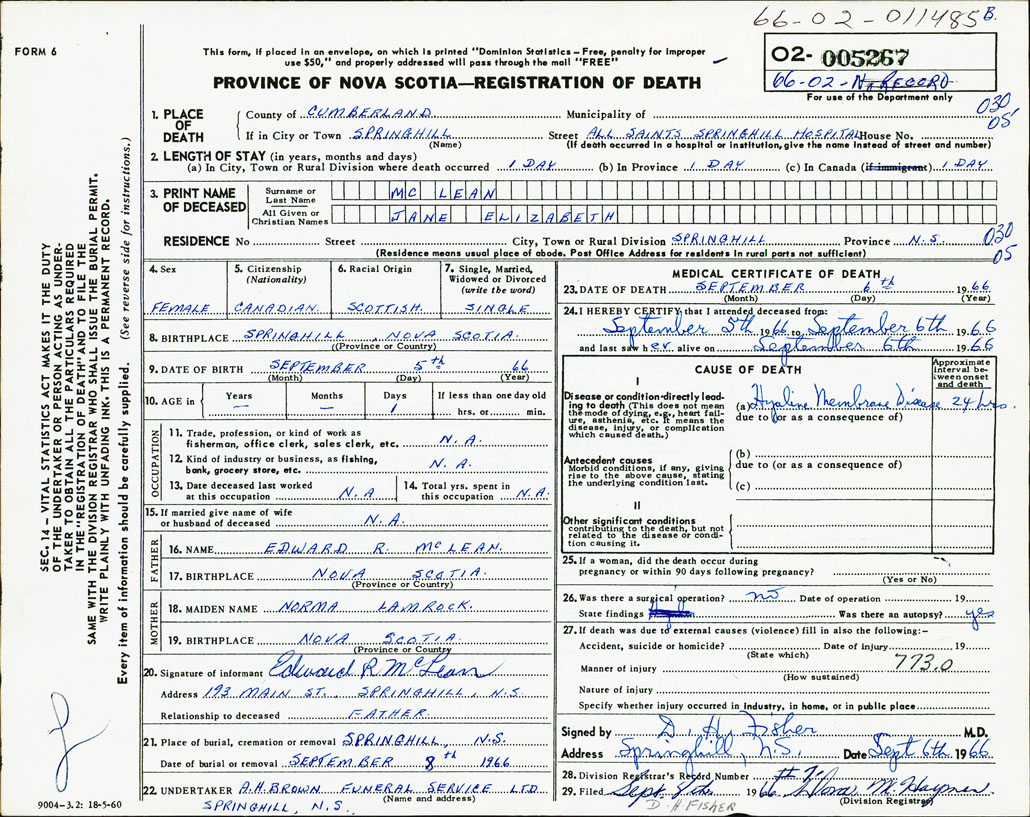 66-02-011485 B.
FORM 6
This form, if placed in an envelope, on which is printed "Dominion Statistics – Free, penalty for improper
use $50," and properly addressed will pass through the mail "FREE"
PROVINCE OF NOVA SCOTIA—REGISTRATION OF DEATH
02- 005267
66-02- RECORD
For use of the Department only
030
05
1. PLACE OF DEATH
County of CUMBERLAND Municipality of
If in City or Town SPRINGHILL Street ALL SAINTS SPRINGHILL HOSPITAL House No.
(Name) (If death occurred in a hospital or institution, give the name instead of street and number)
2. LENGTH OF STAY (in years, months and days)
(a) In City, Town or Rural Division where death occurred 1 DAY (b) In Province 1 DAY (c) In Canada (if immigrant) 1 DAY
3. PRINT NAME OF DECEASED
Surname or Last Name MC LEAN
All Given or Christian Names JANE ELIZABETH
RESIDENCE No Street City, Town or Rural Division SPRINGHILL Province N.S.
030
05
(Residence means usual place of abode. Post Office Address for residents in rural parts not sufficient)
4. Sex FEMALE
5. Citizenship (Nationality) CANADIAN
6. Racial Origin SCOTTISH
7. Single, Married, Widowed or Divorced (write the word) SINGLE
8. BIRTHPLACE SPRINGHILL, NOVA SCOTIA.
(Province or Country)
9. DATE OF BIRTH SEPTEMBER 5th 66
(Month) (Day) (Year)
10. AGE in Years — Months — Days 1 If less than one day old
hrs. or min.
OCCUPATION
11. Trade, profession, or kind of work as
fisherman, office clerk, sales clerk, etc. N.A.
12. Kind of industry or business, as fishing,
bank, grocery store, etc. N.A.
13. Date deceased last worked
at this occupation N.A
14. Total yrs. spent in
this occupation N.A.
15. If married give name of wife
or husband of deceased N.A.
FATHER
16. NAME EDWARD R. McLEAN.
17. BIRTHPLACE NOVA SCOTIA.
(Province or Country)
MOTHER
18. MAIDEN NAME NORMA LAMROCK.
19. BIRTHPLACE NOVA SCOTIA.
(Province or Country)
20. Signature of informant Edward R McLean
Address 193 MAIN ST., SPRINGHILL, N.S.
Relationship to deceased FATHER.
21. Place of burial, cremation or removal SPRINGHILL, N.S.
Date of burial or removal SEPTEMBER 8th 1966
22. UNDERTAKER A.H. BROWN FUNERAL SERVICE LTD
(Name and address)
SPRINGHILL, N.S.
MEDICAL CERTIFICATE OF DEATH
23. DATE OF DEATH SEPTEMBER 6th 1966
(Month) (Day) (Year)
24. I HEREBY CERTIFY that I attended deceased from:
September 5th 1966 to September 6th 1966
and last saw her alive on September 6th 1966
CAUSE OF DEATH
Approximate interval between onset and death
I
Disease or condition directly leading to death (This does not mean the mode of dying, e.g., heart failure, asthenia, etc. It means the disease, injury, or complication which caused death.)
(a) Hyaline Membrane Disease 24 hrs.
due to (or as a consequence of)
Antecedent causes
Morbid conditions, if any, giving rise to the above cause, stating the underlying condition last.
(b)
due to (or as a consequence of)
(c)
II
Other significant conditions
contributing to the death, but not related to the disease or condition causing it.
25. If a woman, did the death occur during
pregnancy or within 90 days following pregnancy?
(Yes or No)
26. Was there a surgical operation? no Date of operation 19
State findings Was there an autopsy? yes
27. If death was due to external causes (violence) fill in also the following:–
Accident, suicide or homicide? Date of injury 19
(State which)
773.0
Manner of injury
(How sustained)
Nature of injury
Specify whether injury occurred in Industry, in home, or in public place
Signed by D. H. Fisher M.D.
Address Springhill, N.S. Date Sept 6th 1966
28. Division Registrar's Record Number
29. Filed Sept. 8th 1966
(Division Registrar)
D. H FISHER
9004–3.2: 18-5-60
SEC. 14 – VITAL STATISTICS ACT MAKES IT THE DUTY
OF THE UNDERTAKER OR PERSON ACTING AS UNDER-
TAKER TO OBTAIN ALL THE PARTICULARS REQUIRED
IN THE "REGISTRATION OF DEATH" AND TO FILE THE
SAME WITH THE DIVISION REGISTRAR WHO SHALL ISSUE THE BURIAL PERMIT.
WRITE PLAINLY WITH UNFADING INK. THIS IS A PERMANENT RECORD.
Every item of information should be carefully supplied. (See reverse side for instructions.)